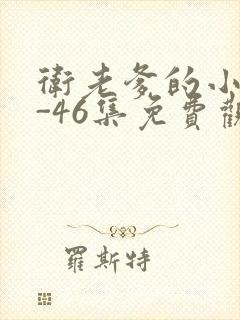 衛老爹的小
-46集免費觀
羅斯特